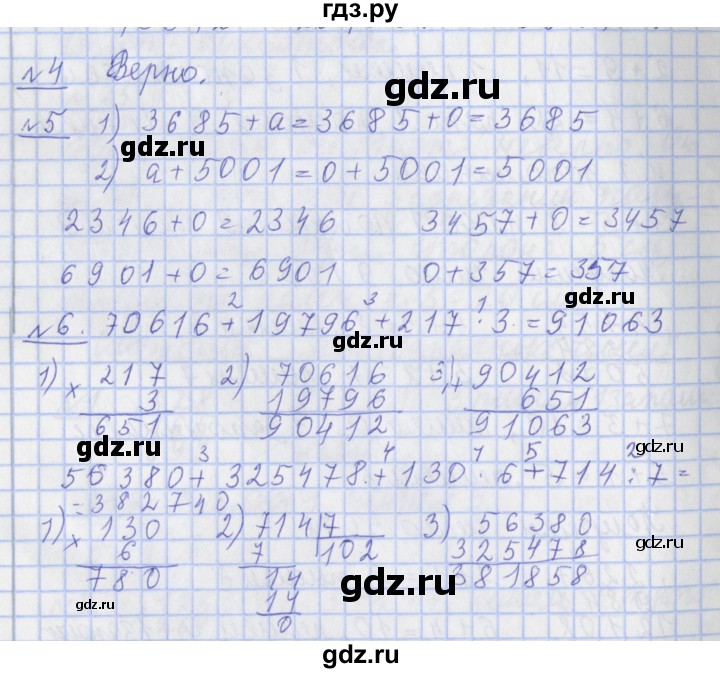 гдз.ру
№4 Верно.
gdz.ru
№5 1) 3685+а=3685+0=3685
gdz.ru
2) а+5001=0+5001=5001
2346+0=2346 3457+0=3457
6901+0=6901 0+357=357
gdz.ru
2 3 1
№6. 70616+19796+217·3.=91063
gdz.ru
1) × 217 2) 70616 3) + 90412
3 19796 651
651 90412 91063
gdz.ru
gdz.ru
3 4 1 5 2
56380+325478.+130·6+714:7=
=382740
1) × 130 2) 714 7 3) 56380
6 7 102 325478
780 14 381858
14
0
gdz.ru
gdz.ru
gdz.ru
gdz.ru
gdz.ru